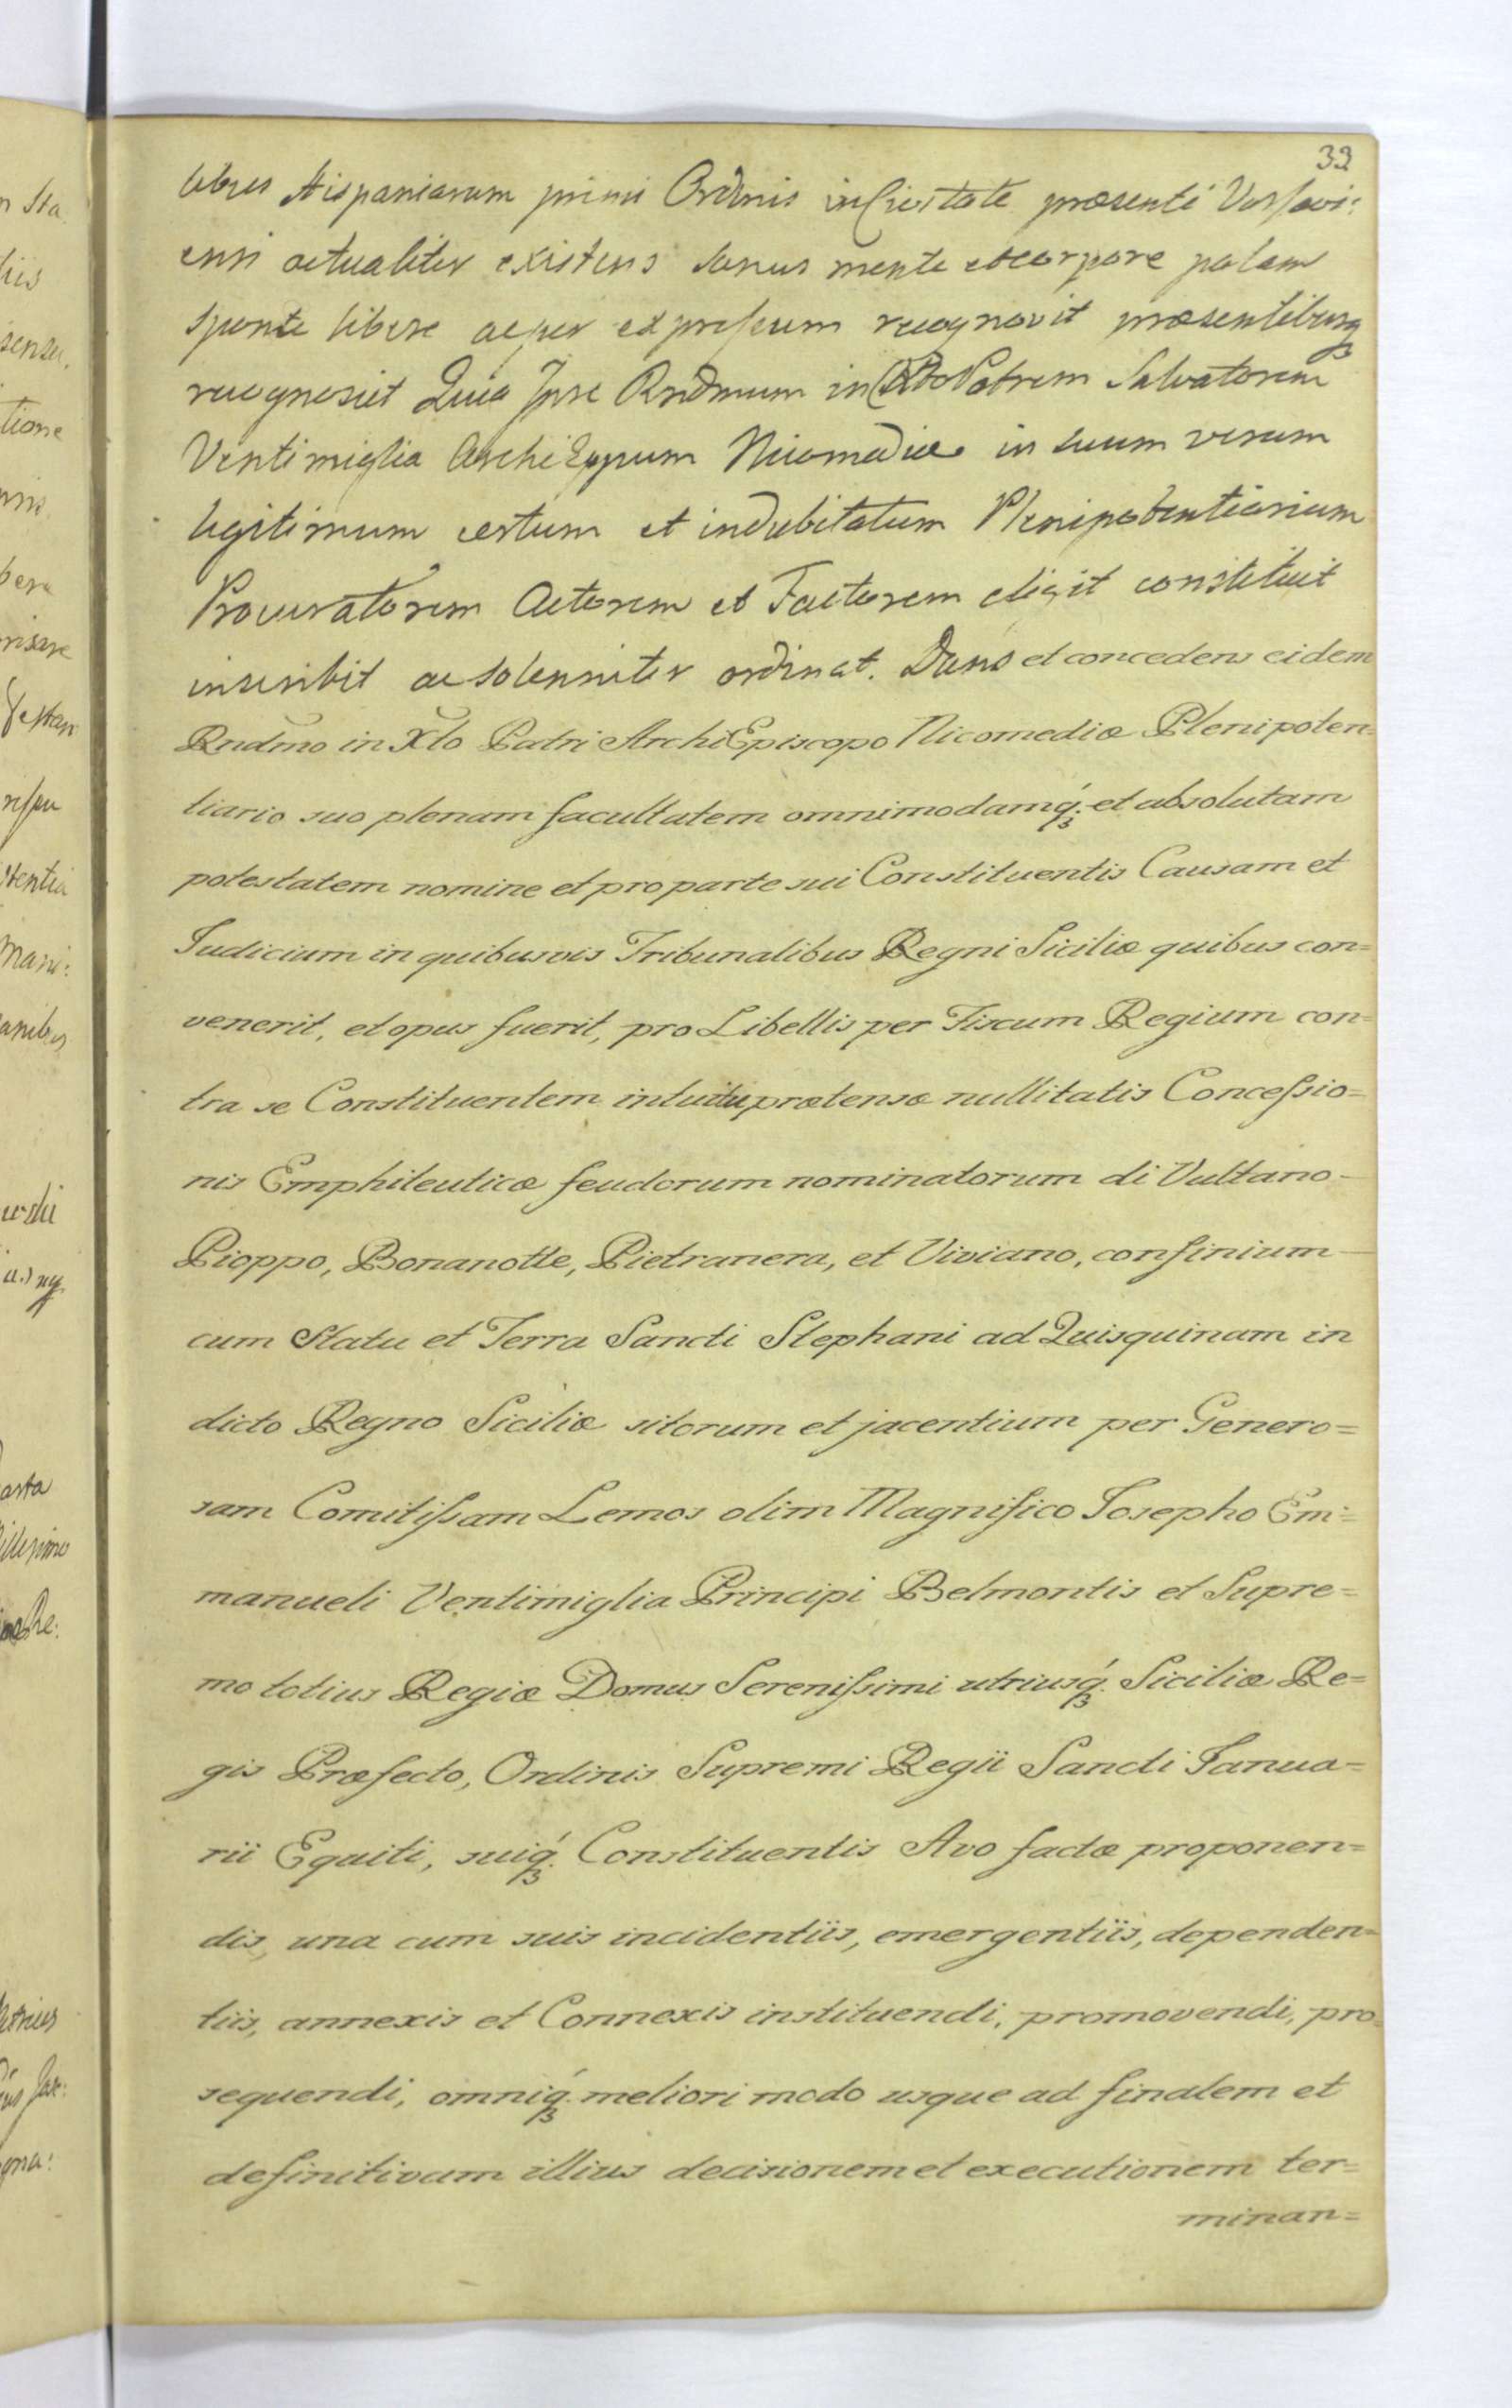 33
libus Hispaniarum primi Ordinis in Civitate præsenti Varsavi:
ensi actualiter existens sanus mente et corpore palam
sponte libere ac per expressum recognovit præsentibusq3
recognoscit Quia Ipse Rndmum in Xto Patrem Salvatorem
Ventimiglia Archi Eppum Nicomediæ in suum verum
legitimum certum et indubitatum Plenipotentiarium
Procuratorem Actorem et Factorem eligit constituit
inscribit ac solenniter ordinat. Dans et concedens eidem
Rndmo in Xto Patri ArchiEpiscopo Nicomediæ Plenipoten=
tiario suo plenam facultatem omnimodamq́3 et absolutam
potestatem nomine et pro parte sui Constituentis Causam et
Judicium in quibusvis Tribunalibus Regni Siciliæ quibus con=
venerit, et opus fuerit, pro Libellis per Fiscum Regium con=
tra se Constituentem intuitu prætensæ nullitatis Concessio=
nis Emphiteuticæ feudorum nominatorum di Vultano-
Pioppo, Bonanotte, Pietranera, et Viviano, confinium-
cum Statu et Terra Sancti Stephani ad Quisquinam in
dicto Regno Siciliæ sitorum et jacentium per Genero=
sam Comitissam Lemos olim Magnifico Josepho Em=
manueli Ventimiglia Principi Belmontis et Supre=
mo totius Regiæ Domus Serenissimi utriusq́3 Siciliæ Re=
gis Præfecto, Ordinis Supremi Regii Sancti Janua=
rii Equiti, suiq́3 Constituentis Avo factæ proponen=
dis, una cum suis incidentiis, emergentiis, dependen=
tiis, annexis et Connexis instituendi, promovendi, pro=
sequendi, omniq́3 meliori modo usque ad finalem et
definitivam illius decisionem et executionem ter=
minan=